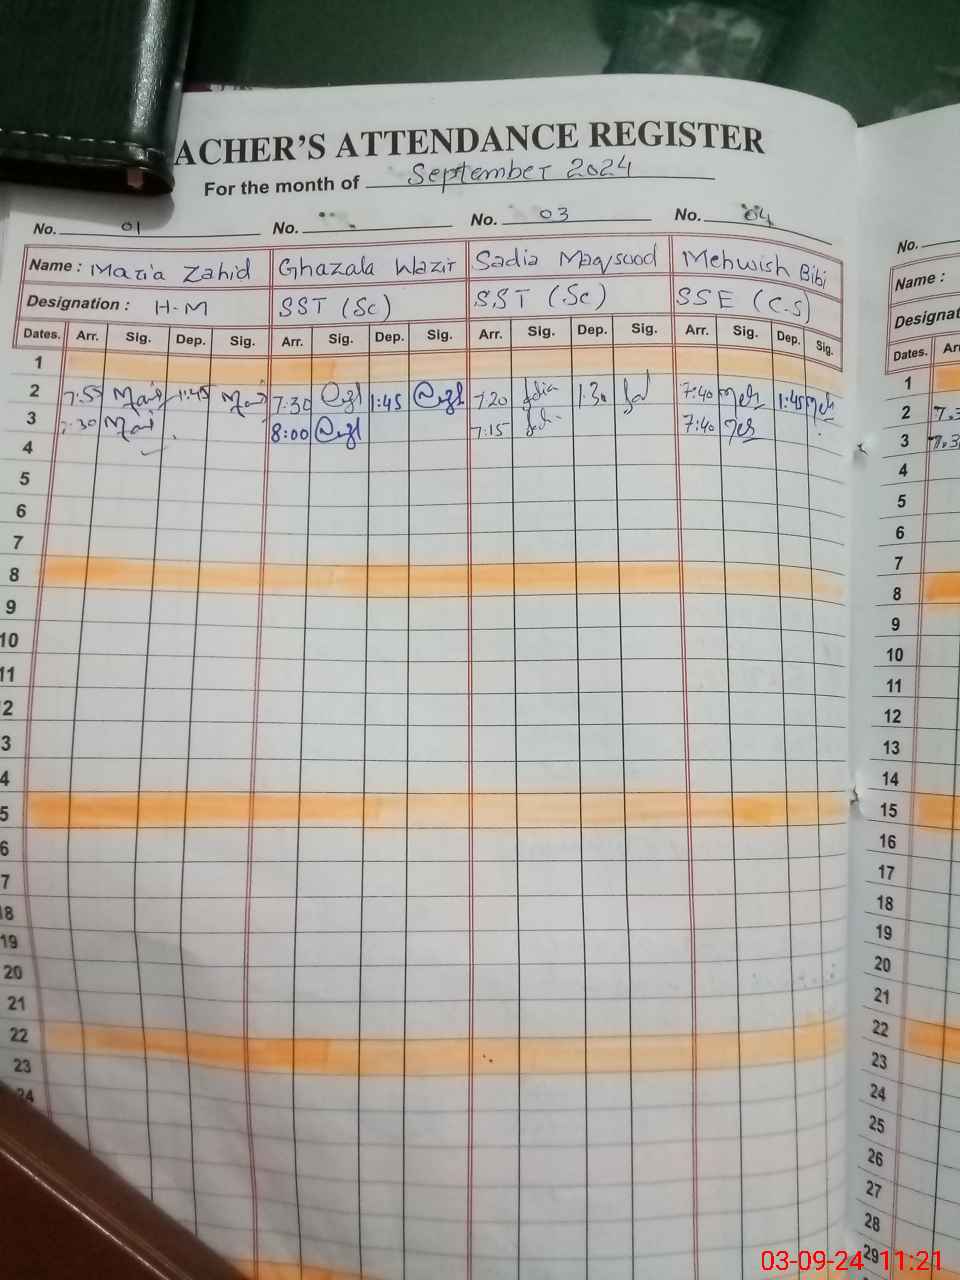 ACHER'S ATTENDANCE REGISTER
For the month of September 2024
No. 01 No. No. 03 No. 04 No.
Name : Mazia Zahid Ghazala Wazir Sadia Maqsood Mehwish Bibi Name :
Designation : H-M SST (Sc) SST (Sc) SSE (C.S) Designat
Dates. Arr. Sig. Dep. Sig. Arr. Sig. Dep. Sig. Arr. Sig. Dep. Sig. Arr. Sig. Dep. Sig. Dates. Ar
1 1
2 7:55 1:45 7:30 1:45 7:20 1:30 7:40 1:45 2 7.3
3 :30 8:00 7:15 7:40 3 7.3
4 4
5 5
6 6
7 7
8 8
9 9
10 10
11 11
2 12
3 13
4 14
5 15
6 16
7 17
18 18
19 19
20 20
21 21
22 22
23 23
24 24
25
26
27
28
29
03-09-24 11:21